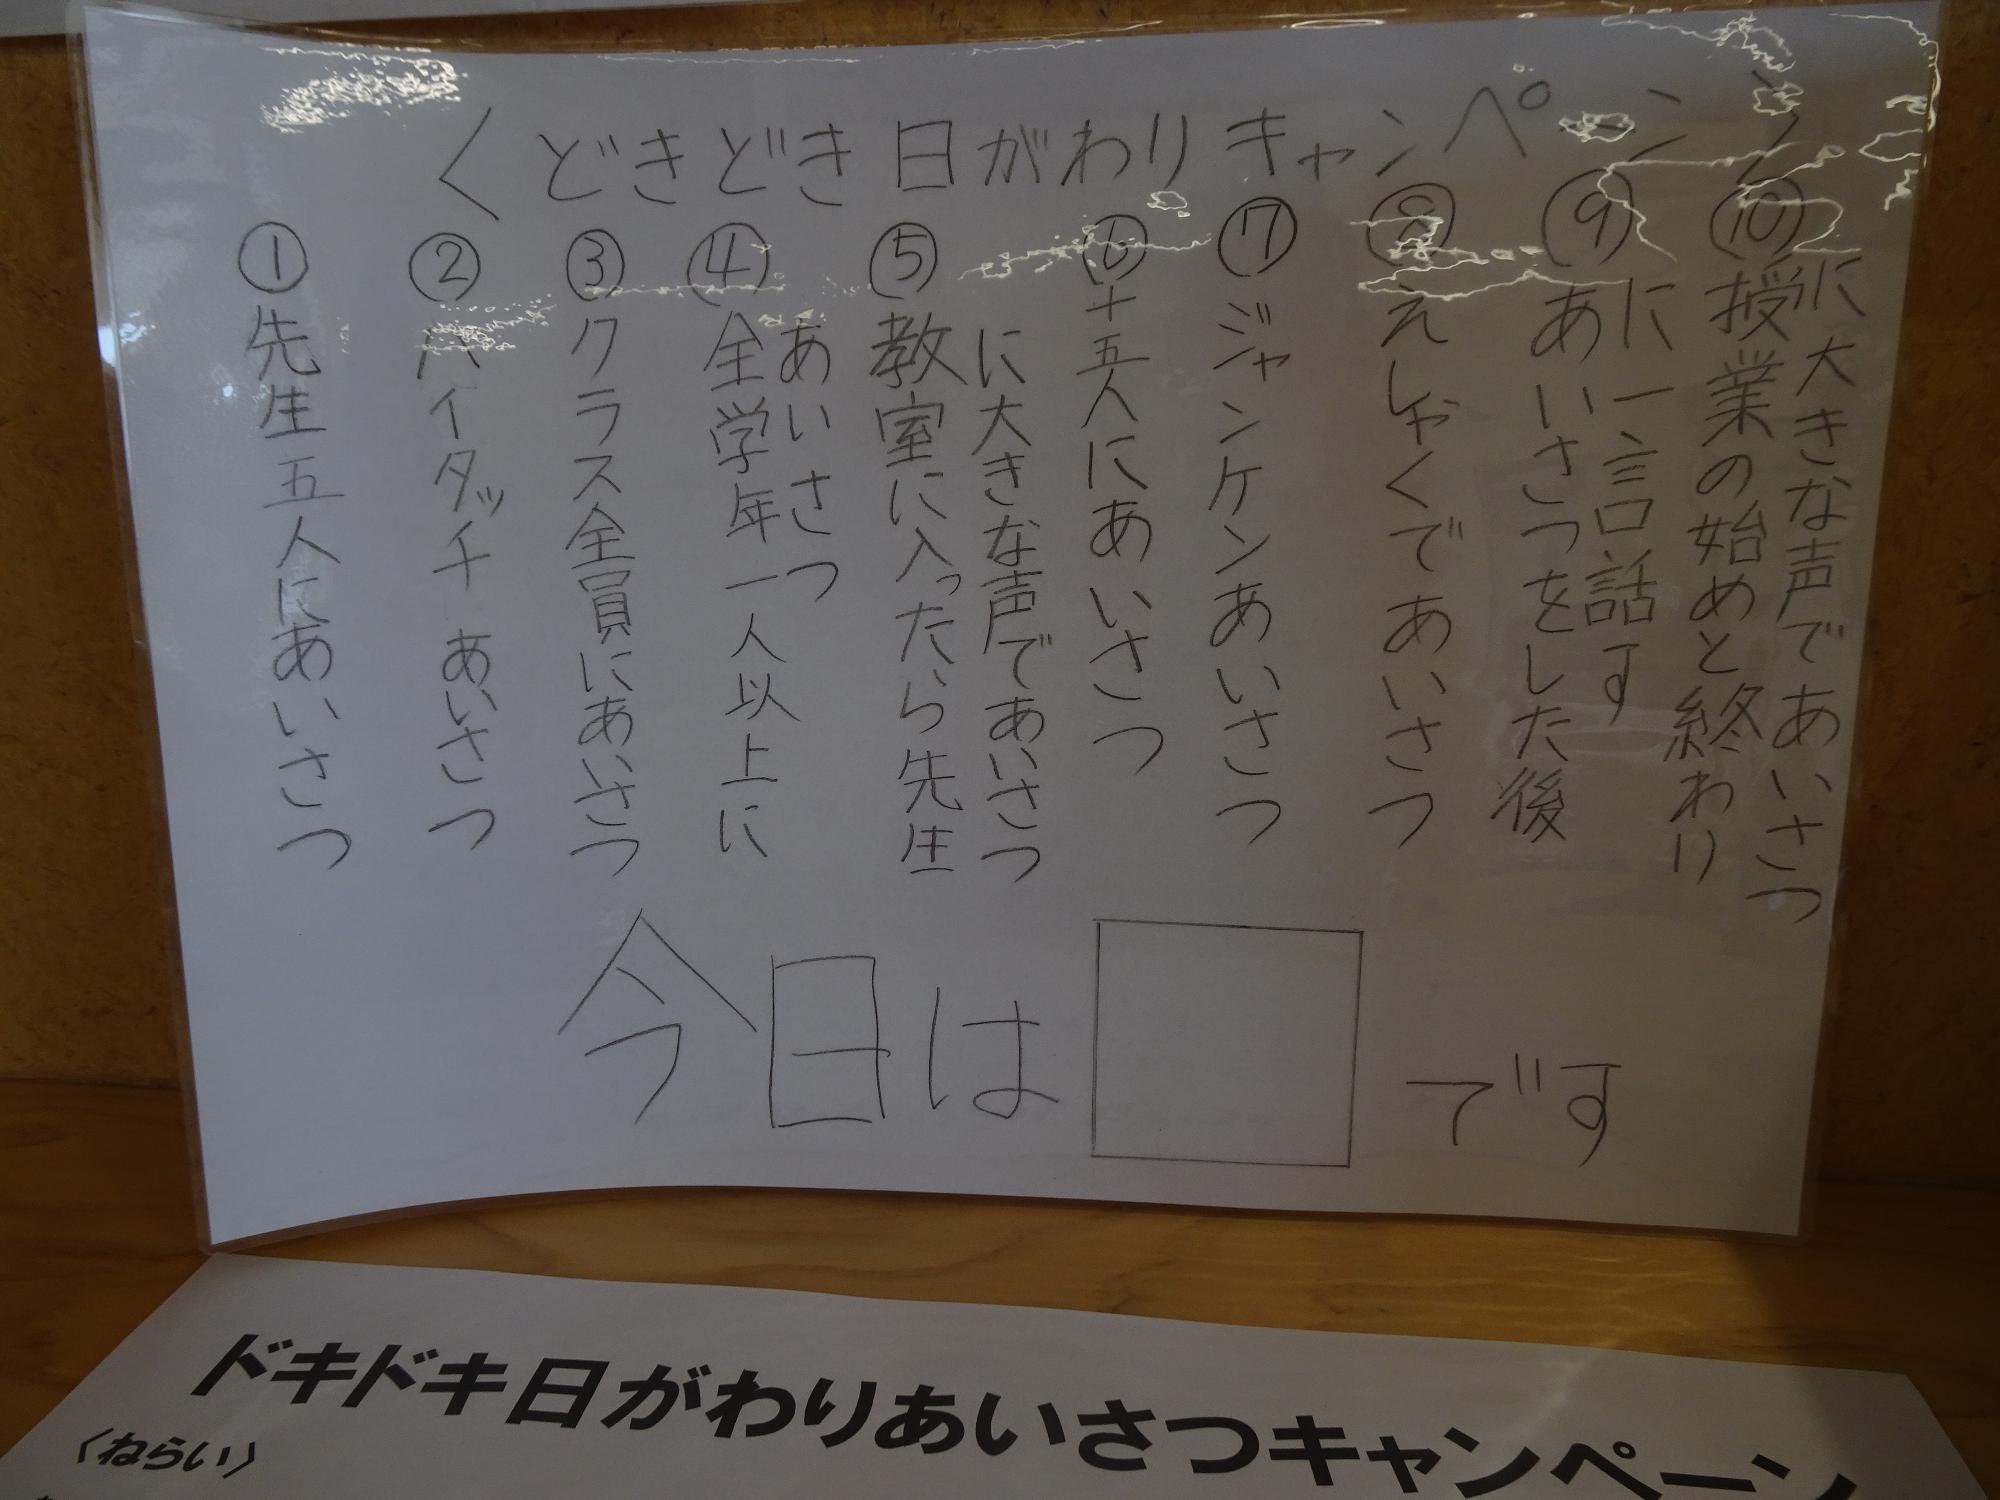 〈どきどき日がわりキャンペーン〉
①先生五人にあいさつ
②ハイタッチあいさつ
③クラス全員にあいさつ
④全学年一人以上に
あいさつ
⑤教室に入ったら先生
に大きな声であいさつ
⑥十五人にあいさつ
⑦ジャンケンあいさつ
⑧えしゃくであいさつ
⑨あいさつをした後
に一言話す
⑩授業の始めと終わり
に大きな声であいさつ
今日は□です
ドキドキ日がわりあいさつキャンペーン
〈ねらい〉